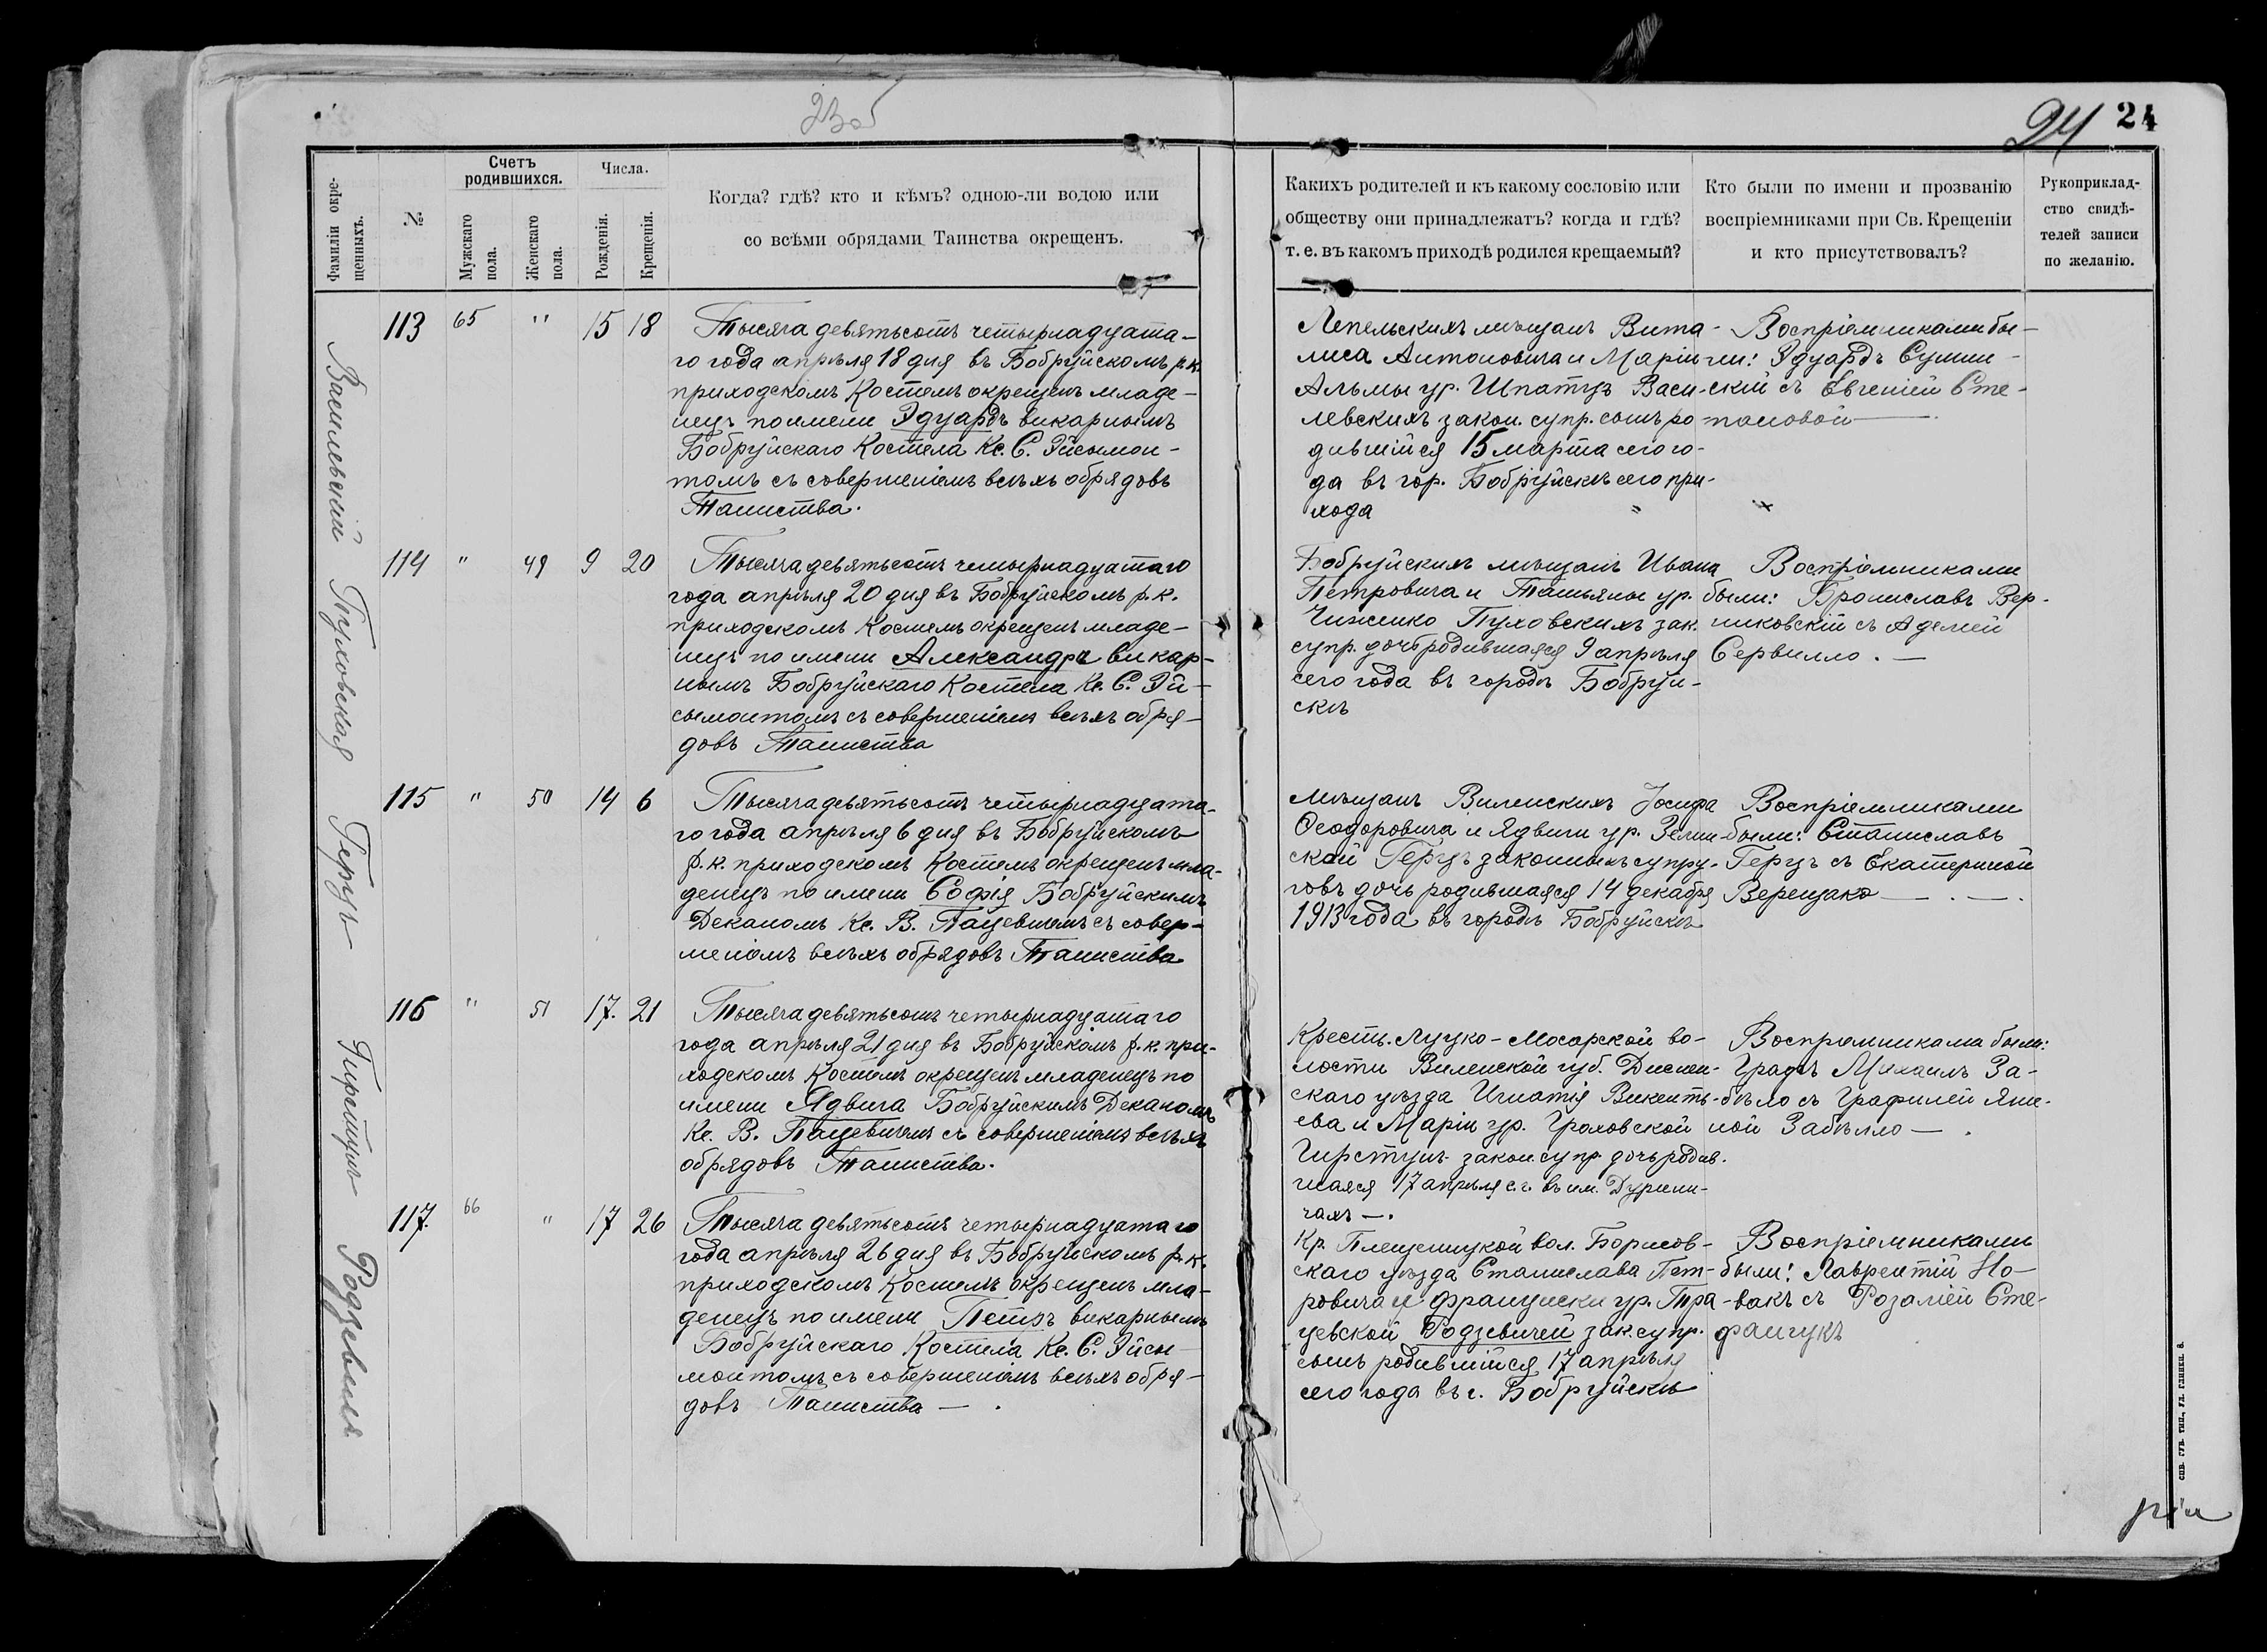 23об
24 24
Фамиліи окре-
щенныхъ.
№
Счетъ
родившихся.
Мужскаго
пола.
Женскаго
пола.
Числа.
Рожденія.
Крещенія.
Когда? гдѣ? кто и кѣмъ? одною-ли водою или
со всѣми обрядами Таинства окрещенъ.
Какихъ родителей и къ какому сословію или
обществу они принадлежатъ? когда и гдѣ?
т. е. въ какомъ приходѣ родился крещаемый?
Кто были по имени и прозванію
воспріемниками при Св. Крещеніи
и кто присутствовалъ?
Рукоприклад-
ство свидѣ-
телей записи
по желанію.
113 65 " 15 18
Тысяча девятьсотъ четырнадцата-
го года апрѣля 18 дня въ Бобруйскомъ р.к.
приходскомъ Костелѣ окрещенъ младе-
нецъ по имени Эдуардъ викарнымъ
Бобруйскаго Костела Кс. С. Эйсымон-
томъ съ совершеніемъ всѣхъ обрядовъ
Таинства.
Лепельскихъ мѣщанъ Вита-
лиса Антоновича и Маріи
Альмы ур. Шпатцъ Васи-
левскихъ закон. супр. сынъ ро
дившійся 15 марта сего го-
да въ гор. Бобруйскѣ сего при-
хода
Воспріемниками бы-
ли: Эдуардъ Сумин-
скій съ Евгеніей Сте-
пановой
114 " 49 9 20
Тысяча девятьсотъ четырнадцатаго
года апрѣля 20 дня въ Бобруйскомъ р.к.
приходскомъ Костелѣ окрещенъ младе-
нецъ по имени Александра викар-
нымъ Бобруйскаго Костела Кс. С. Эй-
сымонтомъ съ совершеніемъ всѣхъ обря-
довъ Таинства
Бобруйскихъ мѣщанъ Ивана
Петровича и Татьяны ур.
Чижико Пуховскихъ зак.
супр. дочь родившаяся 9 апрѣля
сего года въ городѣ Бобруй-
скѣ
Воспріемниками
были: Брониславъ Вер-
никовскій съ Аделей
Сервилло. —
115 " 50 14 6
Тысяча девятьсотъ четырнадцата-
го года апрѣля 6 дня въ Бобруйскомъ
р.к. приходскомъ Костелѣ окрещенъ мла-
денецъ по имени Софія Бобруйскимъ
Деканомъ Кс. В. Пацевичемъ съ совер-
шеніемъ всѣхъ обрядовъ Таинства
Мѣщанъ Виленскихъ Іосифа
Ѳеодоровича и Ядвиги ур. Зелин-
ской Герцъ законныхъ супру-
говъ дочь родившаяся 14 декабря
1913 года въ городѣ Бобруйскѣ
Воспріемниками
были: Станиславъ
Герцъ съ Екатериной
Верещако
116 " 51 17. 21
Тысяча девятьсотъ четырнадцатаго
года апрѣля 21 дня въ Бобруйскомъ р.к. при-
ходскомъ Костелѣ окрещенъ младенецъ по
имени Ядвига Бобруйскимъ Деканомъ
Кс. В. Пацевичемъ съ совершеніемъ всѣхъ
обрядовъ Таинства.
Крест. Луцко-Мосарской во-
лости Виленской губ. Диснен-
скаго уѣзда Игнатія Викенть-
ева и Маріи ур. Гроховской
Гирстунъ закон. супр. дочь родив.
шаяся 17 апрѣля с.г. въ им. Дурини-
чахъ —.
Воспріемниками были:
Графъ Михаилъ За-
бѣло съ Графиней Яни-
ной Забѣлло —.
117. 66 " 17 26
Тысяча девятьсотъ четырнадцатаго
года апрѣля 26 дня въ Бобруйскомъ р.к.
приходскомъ Костелѣ окрещенъ мла-
денецъ по имени Петръ викарнымъ
Бобруйскаго Костела Кс. С. Эйсы-
монтомъ съ совершеніемъ всѣхъ обря-
довъ Таинства —.
Кр. Плещеницкой вол. Борисов-
скаго уѣзда Станислава Пет-
ровича и Франциски ур. Тра-
цевской Родзевичей зак. супр.
сынъ родившійся 17 апрѣля
сего года въ г. Бобруйскѣ
Воспріемниками
были: Лаврентій Но-
вакъ съ Розаліей Сте-
фанчукъ
Василевскій
Пуховская
Герцъ
Гирстунъ
Родзевичъ
спб. губ. тип., ул. глинки. 8.